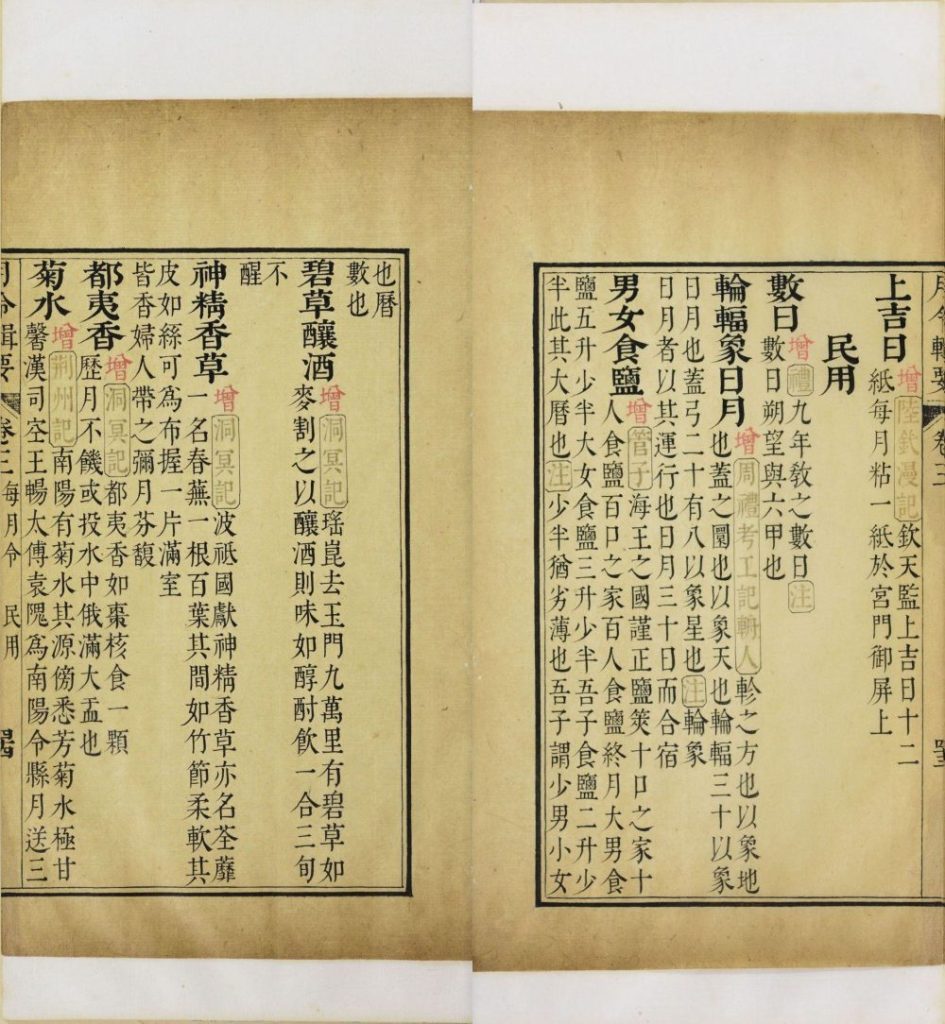 月令輯要 卷三
上吉日 增陸釴漫記欽天監上吉日十二
紙每月粘一紙於宮門御屏上
民用
數日 增禮九年敎之數日注
數日朔望與六甲也
輪輻象日月 增周禮考工記輈人軫之方也以象地
也蓋之圜也以象天也輪輻三十以象
日月也蓋弓二十有八以象星也注輪象
日月者以其運行也日月三十日而合宿
男女食鹽 增管子海王之國謹正鹽筴十口之家十
人食鹽百口之家百人食鹽終月大男食
鹽五升少半大女食鹽三升少半吾子食鹽二升少
半此其大曆也注少半猶劣薄也吾子謂少男小女
也曆
數也
碧草釀酒 增洞冥記瑤崑去玉門九萬里有碧草如
麥割之以釀酒則味如醇酎飮一合三旬
不
醒
神精香草 增洞冥記波祗國獻神精香草亦名荃蘼
一名春蕪一根百葉其間如竹節柔軟其
皮如絲可爲布握一片滿室
皆香婦人帶之彌月芬馥
都夷香 增洞冥記都夷香如棗核食一顆
歷月不饑或投水中俄滿大盂也
菊水 增荆州記南陽有菊水其源傍悉芳菊水極甘
馨漢司空王暢太傅袁隗爲南陽令縣月送三
月令輯要 卷三 每月令 民用